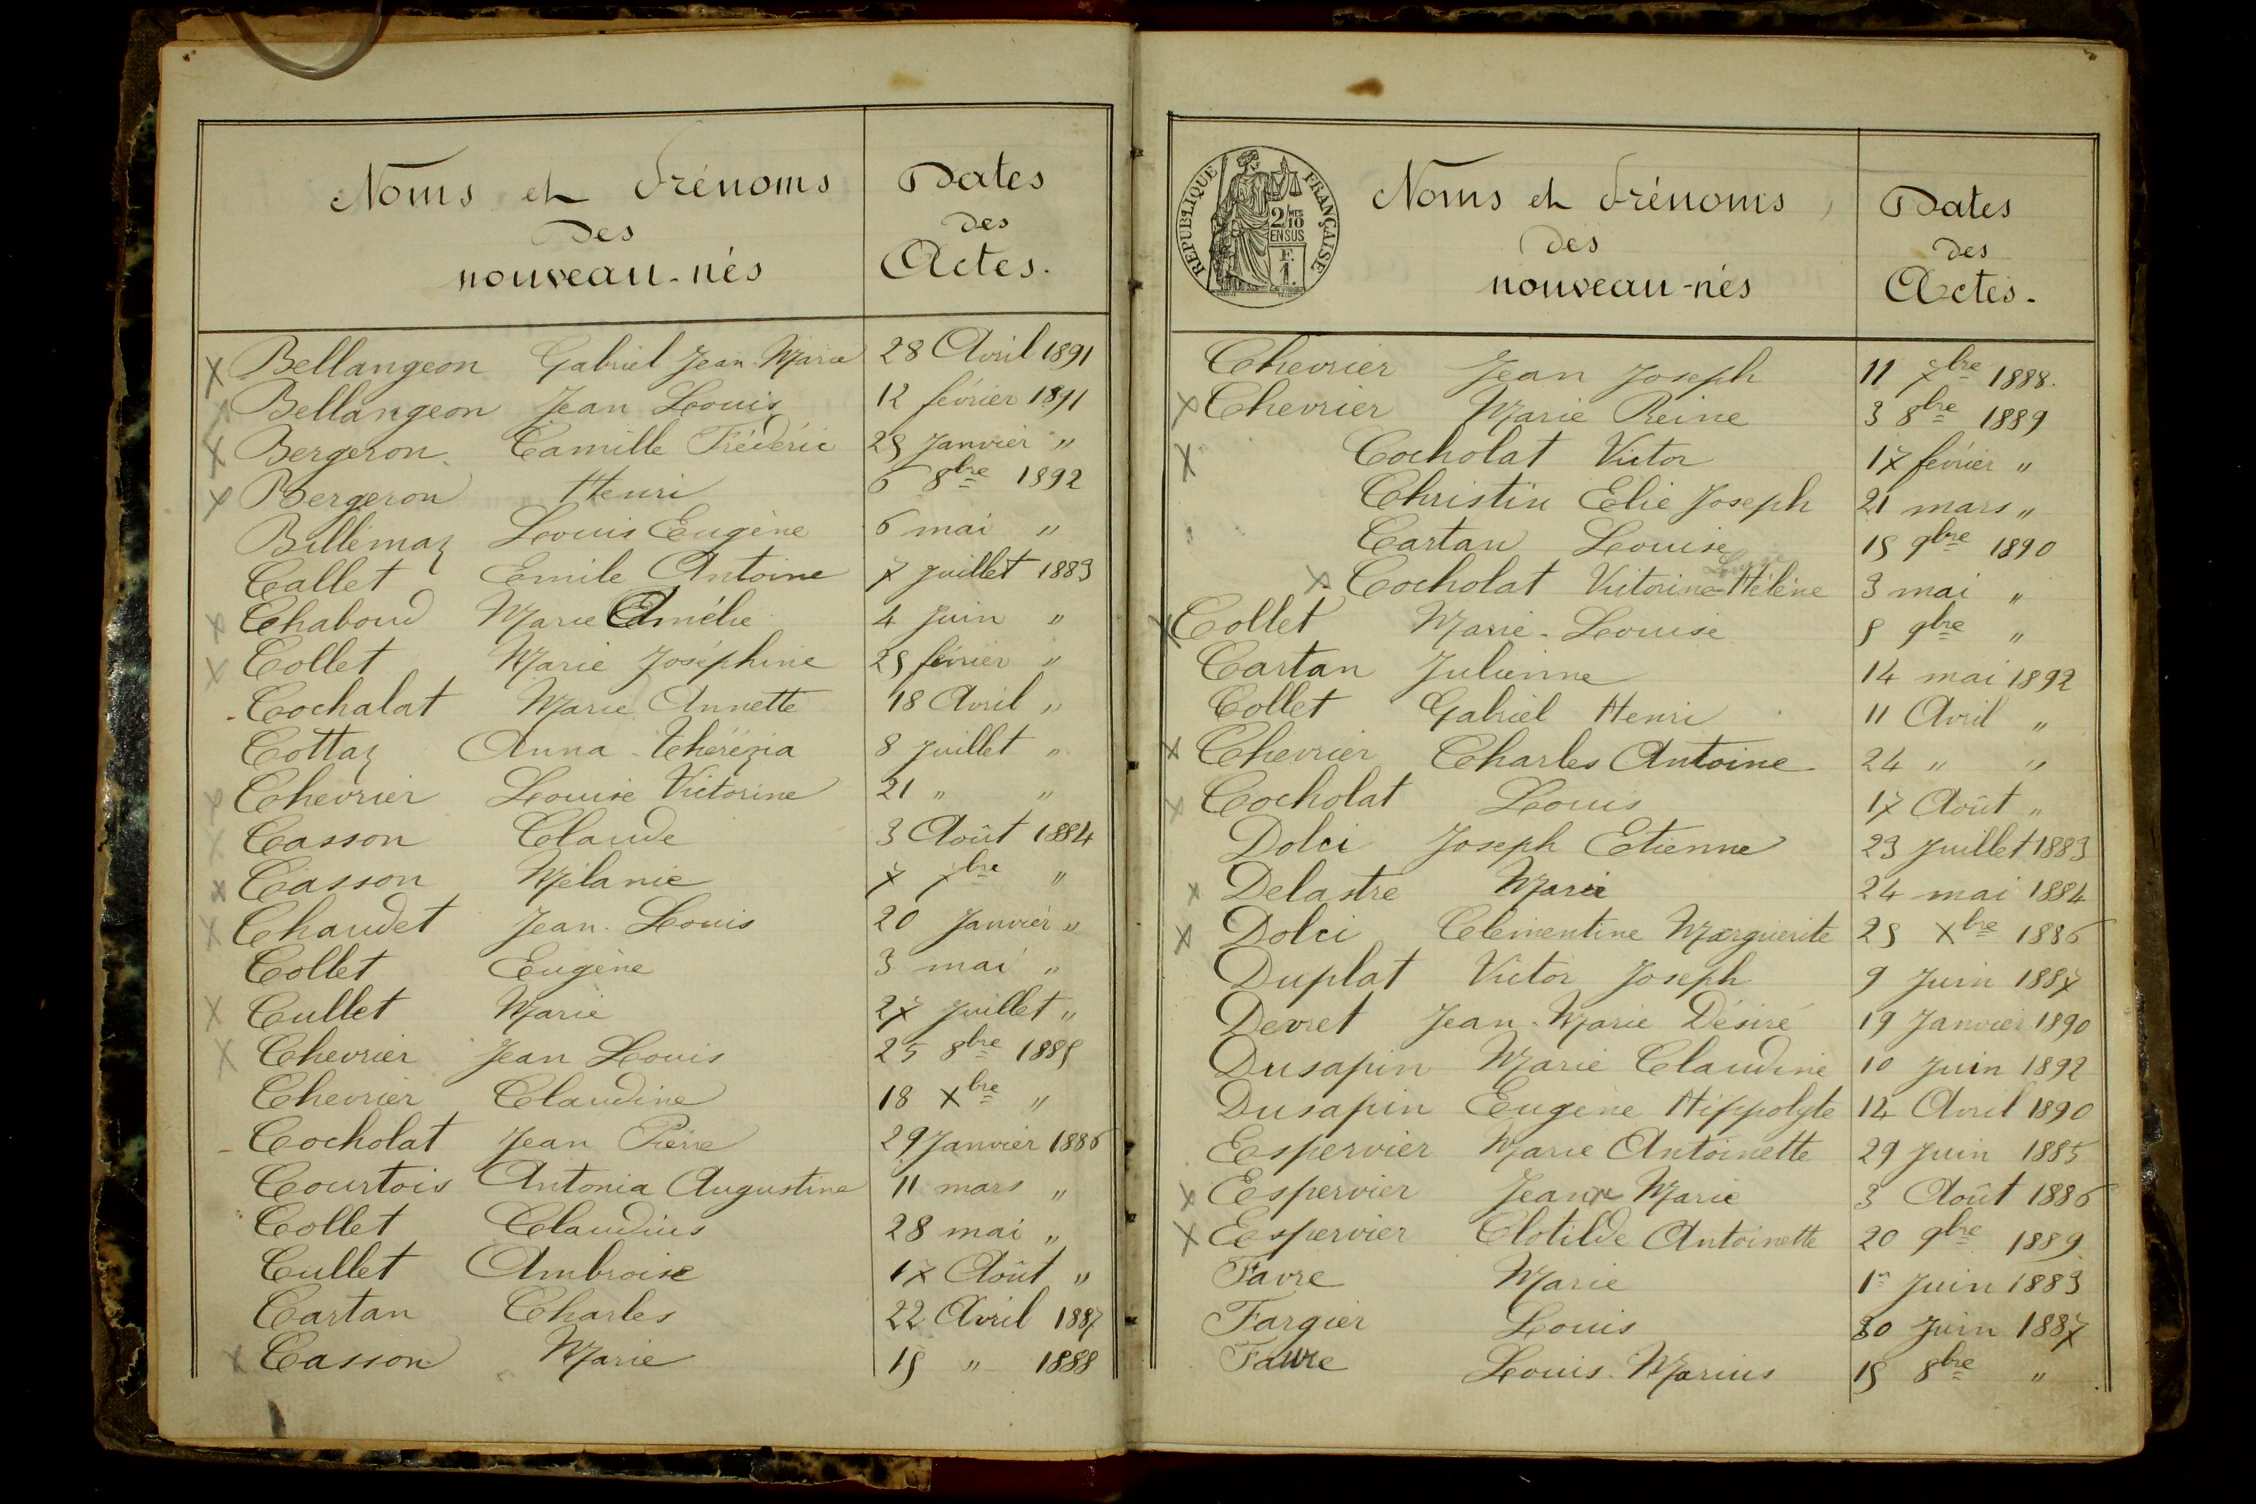 Noms et Prénoms
des
nouveau-nés
Dates
des
Actes.
Bellangeon Gabriel Jean-Marie 28 Avril 1891
Bellangeon Jean Louis 12 février 1891
Bergeron Camille Frédéric 25 Janvier "
Bergeron Henri 6 8bre 1892
Billémaz Louis Eugène 6 mai "
Callet Emile Antoine 7 Juillet 1883
Chaboud Marie Amélie 4 Juin "
Collet Marie Joséphine 25 février "
Cochalat Marie Annette 18 Avril "
Cottaz Anna-Thérézia 8 Juillet "
Chevrier Louise Victorine 21 " "
Casson Claude 3 Août 1884
Casson Mélanie 7 7bre "
Chaudet Jean-Louis 20 Janvier "
Collet Eugène 3 mai "
Cullet Marie 27 Juillet "
Chevrier Jean Louis 25 8bre 1885
Chevrier Claudine 18 Xbre "
Cocholat Jean Pierre 29 Janvier 1886
Courtois Antonia Augustine 11 mars "
Collet Claudius 28 mai "
Cullet Ambroise 17 Août "
Cartan Charles 22 Avril 1887
Casson Marie 15 " 1888
REPUBLIQUE FRANÇAISE
2/10MES
EN SUS
F.
1.
Noms et Prénoms
des
nouveau-nés
Dates
des
Actes.
Chevrier Jean Joseph 11 7bre 1888.
Chevrier Marie Reine 3 8bre 1889
Cocholat Victor 17 février "
Christin Elie Joseph 21 mars "
Cartan Louise 15 9bre 1890
Cocholat Victorine-Hélène 3 mai "
Collet Marie-Louise 5 9bre "
Cartan Julienne 14 mai 1892
Collet Gabriel Henri 11 Avril "
Chevrier Charles Antoine 24 " "
Cocholat Louis 17 Août "
Dolci Joseph Etienne 23 Juillet 1883
Delastre Marie 24 mai 1884
Dolci Clémentine Marguerite 25 Xbre 1886
Duplat Victor Joseph 9 Juin 1887
Devret Jean-Marie Désiré 19 Janvier 1890
Dusapin Marie Claudine 10 Juin 1892
Dusapin Eugène Hippolyte 14 Avril 1890
Espervier Marie Antoinette 29 Juin 1885
Espervier Jean Marie 3 Août 1886
Espervier Clotilde Antoinette 20 9bre 1889
Favre Marie 1er Juin 1883
Fargier Louis 30 Juin 1887
Favre Louis-Marius 15 8bre "